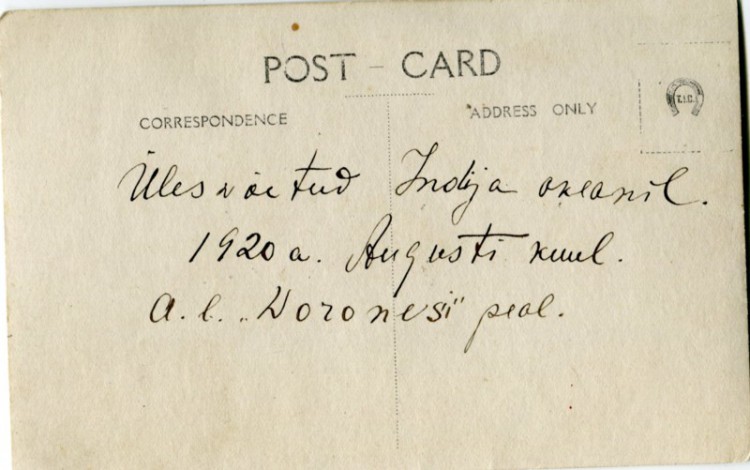 POST - CARD
CORRESPONDENCE
ADDRESS ONLY
T.I.C.
Ülesvõetud Indija okeanil.
1920 a. Augusti kuul.
a. l. „Woronesi" peal.